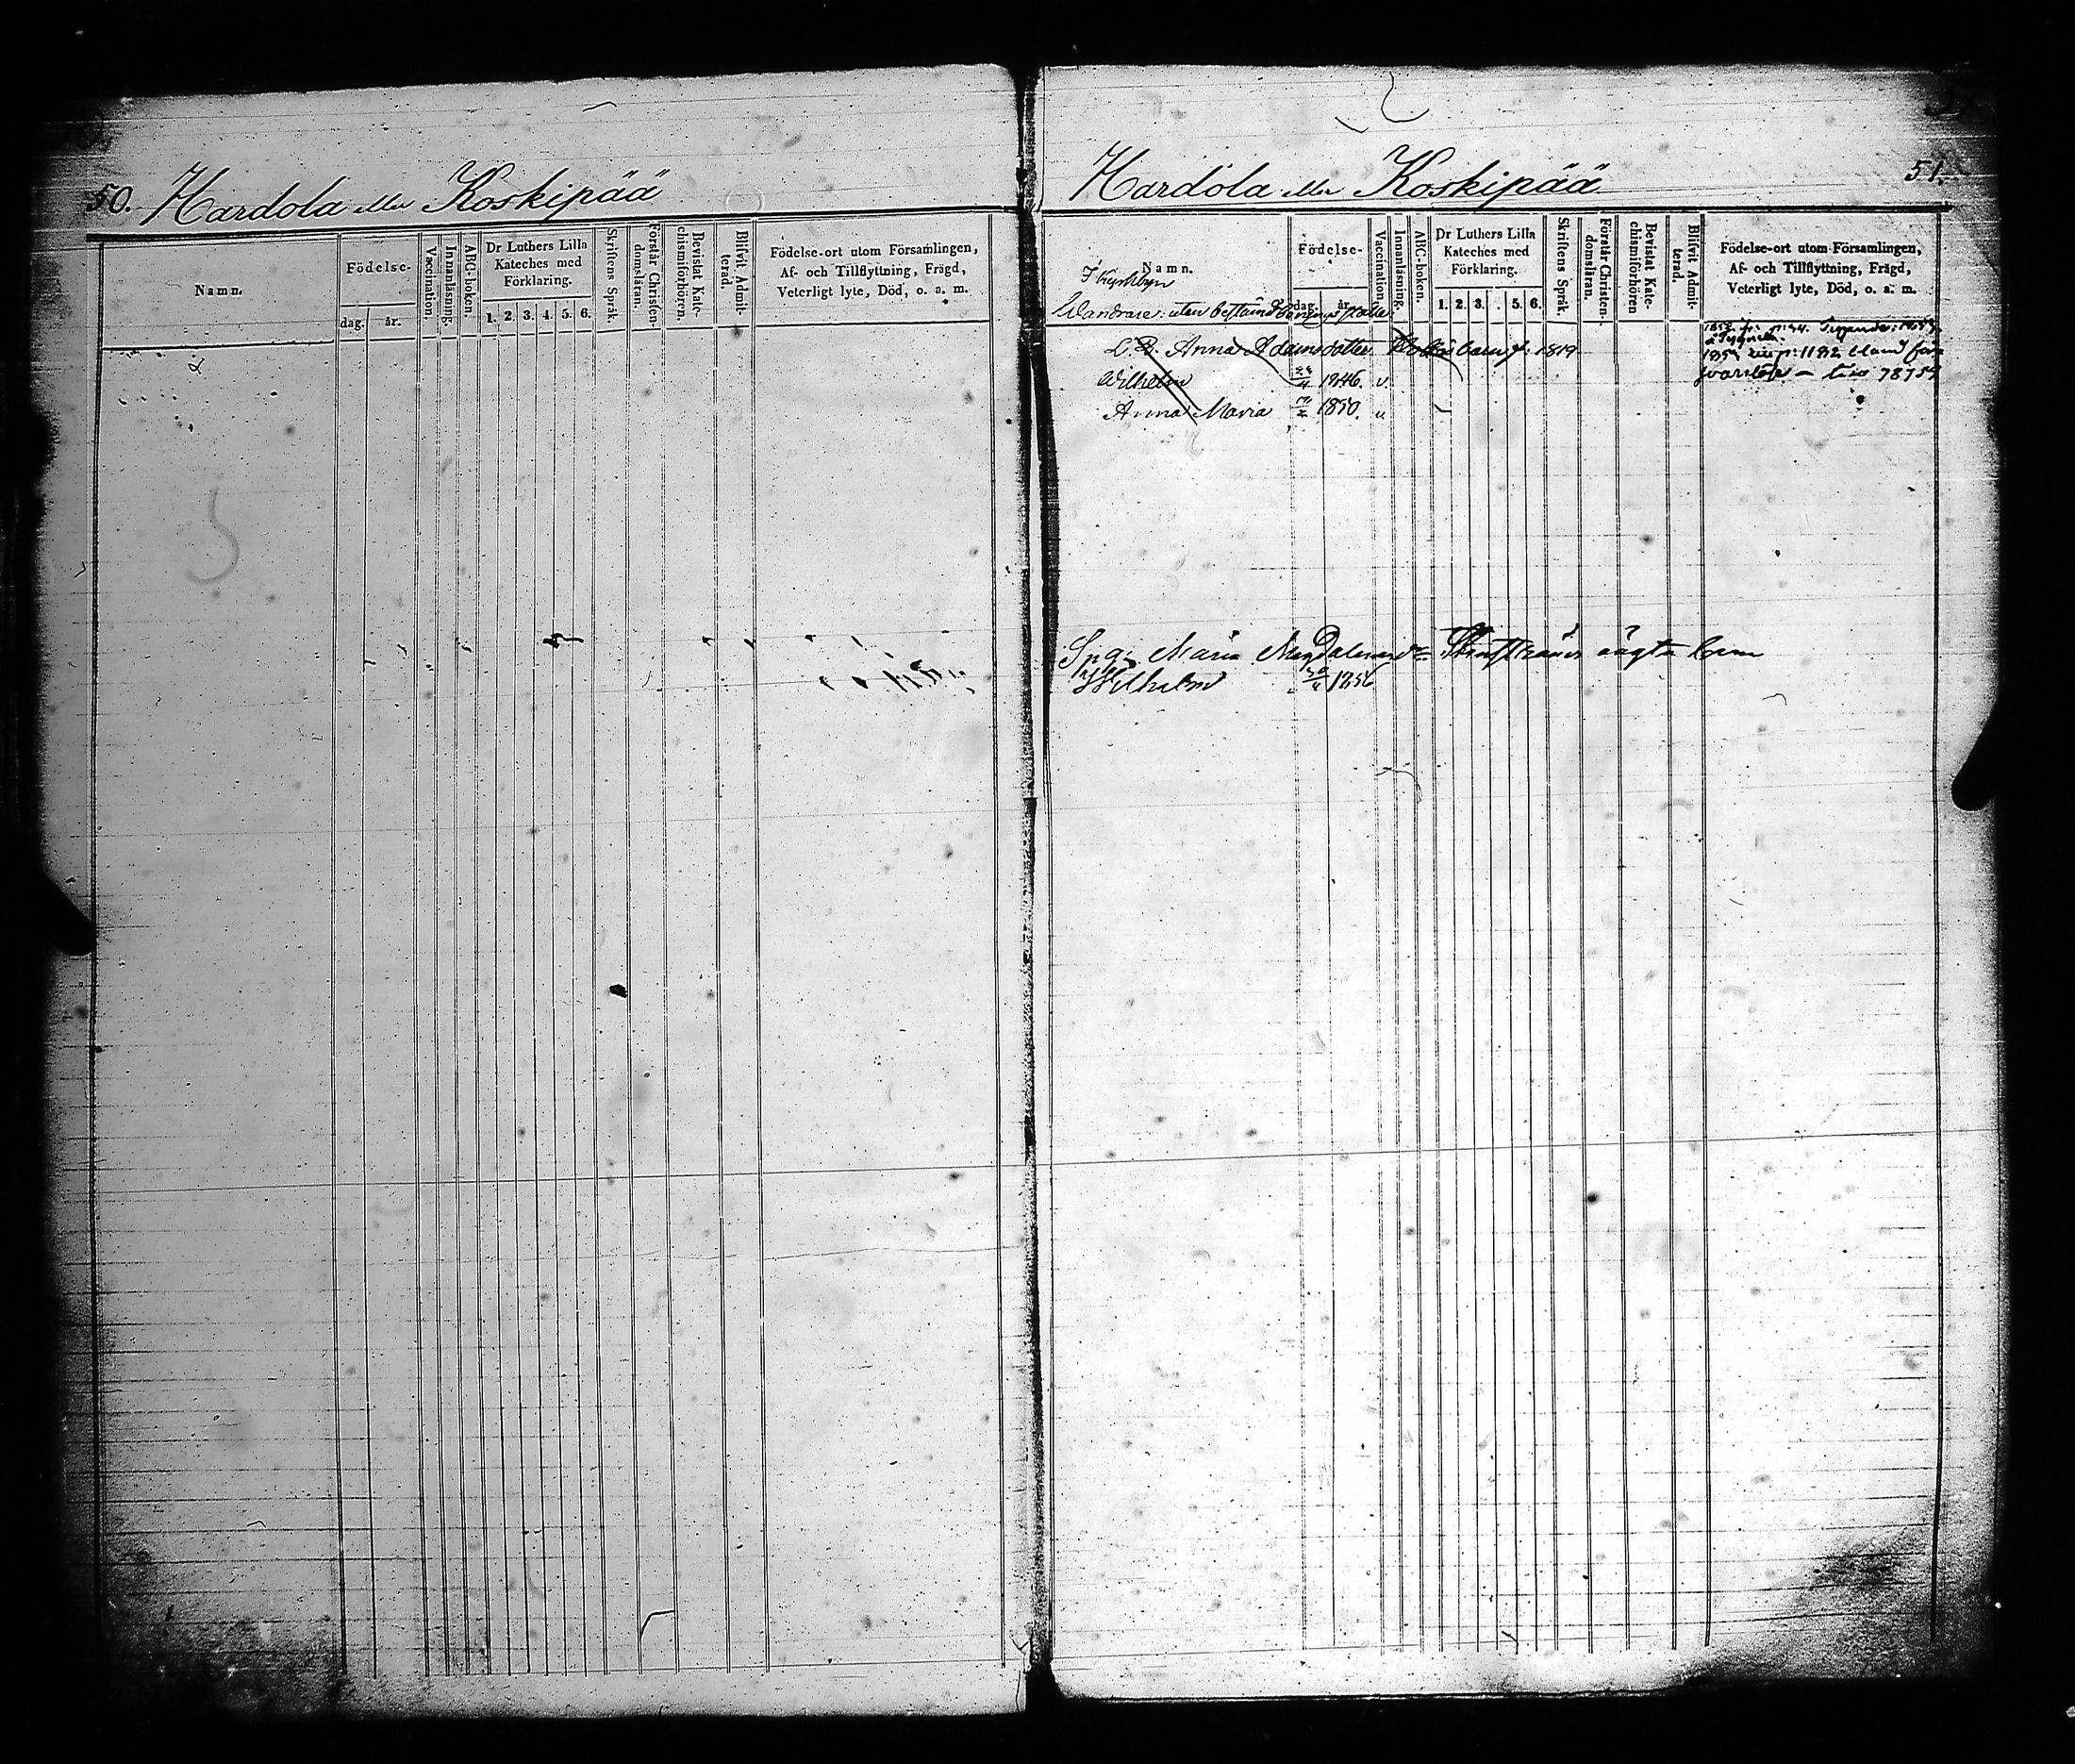 50. Hardola eller Koskipää
Namn.
Födelse-
dag.
år.
Vaccination.
Innanläsning.
ABC-boken.
Dr Luthers Lilla
Kateches med
Förklaring.
1. 2. 3. 4. 5. 6.
Skriftens Språk.
Förstår Christen-
domsläran.
Bevistat Kate-
chismiförhören.
Blifvit Admit-
terad.
Födelse-ort utom Församlingen,
Af- och Tillflyttning, Frägd,
Veterligt lyte, Död, o. a. m.
Hardola eller Koskipää
51.
Namn.
Wandrare utan bestämd
Födelse-
dag.
år.
Vaccination.
Innanläsning.
ABC-boken.
Dr Luthers Lilla
Kateches med
Förklaring.
1. 2. 3. . 5. 6.
Skriftens Språk.
Förstår Christen-
domsläran.
Bevistat Kate-
chismiförhören
Blifvit Admit-
terad.
Födelse-ort utom Församlingen,
Af- och Tillflyttning, Frägd,
Veterligt lyte, Död, o. a. m.
Anna Adamsdotter barn f. 1819
Wilhelm 1846. v.
Anna Maria 1850. v
Maria oägta barn
Wilhelm 1856